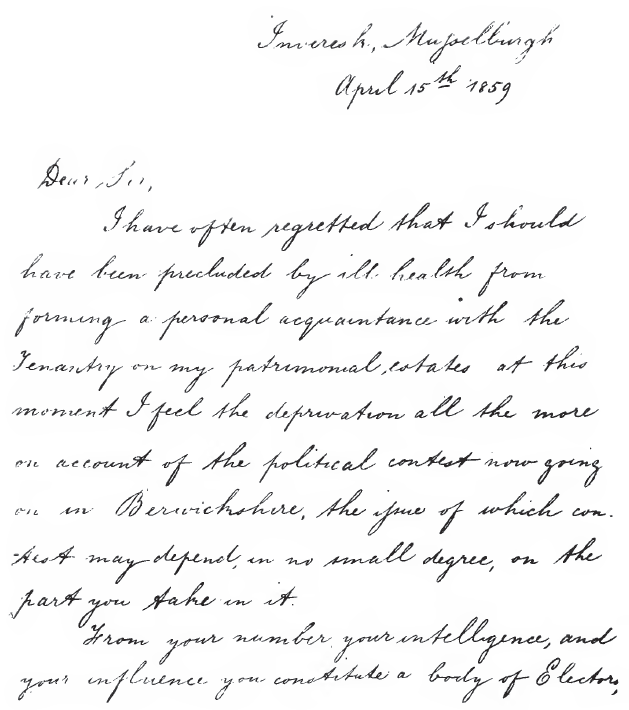 Inveresk, Musselburgh
April 15th 1859
Dear Sir,
I have often regretted that I should
have been precluded by ill health from
forming a personal acquaintance with the
Tenantry on my patrimonial estates at this
moment I feel the deprivation all the more
on account of the political contest now going
on in Berwickshire, the issue of which con-
-test may depend, in no small degree, on the
part you take in it.
From your number, your intelligence, and
your influence you constitute a body of Electors,